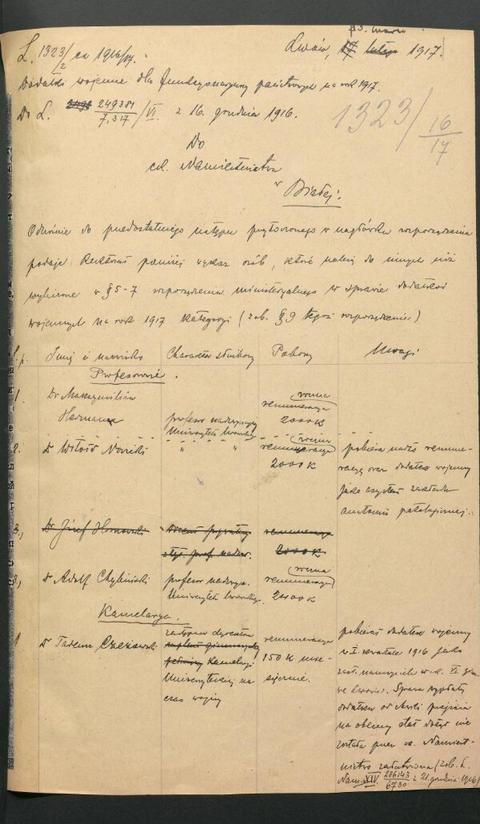 L. 1323/2 ex 1916/17.
Lwów, 17 lutego 1917.
Dodatki wojenne dla funkcyonaryuszy państwowych na rok 1917.
Do L. 249381/7.317/VI z 16. grudnia 1916.
1323/16/17
Do
c.k. Namiestnictwa
w
Białej.
Odnośnie do przedostatniego ustępu przytoczonego w nagłówku rozporządzenia
podaje Rektorat poniżej wykaz osób, które należą do innych niż
w § 5-7 rozporządzenia ministeryalnego w sprawie dodatków
wojennych na rok 1917 kategoryi (zob. § 9 tegoż rozporządzenia)
L.p. Imię i nazwisko Charakter służbowy Pobory Uwagi
Profesorowie.
1 Dr Maksymilian
Herman profesor nadzwycz.
Uniwersytetu lwowskiego
remuneracya
2000 K
2. Dr Witold Nowicki " " remuneracya
2000 K
pobiera nadto remune-
racyę oraz dodatek wojenny
jako asystent zakładu
anatomii patologicznej.
3, Dr Józef Hornowski
remuneracya
2000 K
3, Dr Adolf Chybiński profesor nadzwycz.
Uniwersytetu lwowskiego
remuneracya
2400 K
Kancelarya.
1 Dr Tadeusz Czeżowski zastępca dyrektora
Kancelaryi
Uniwersyteckiej na
czas wojny
remuneracya
150 K mie-
sięcznie.
pobierał dodatek wojenny
w I kwartale 1916 jako
we Lwowie. Sprawa wypłaty
dodatku od chwili przejścia
na obecny etat dotąd nie
została przez c.k. Namiest-
nictwo załatwiona (zob. L.
Nam. XIV. 286143/6730 z 21. grudnia 1916)